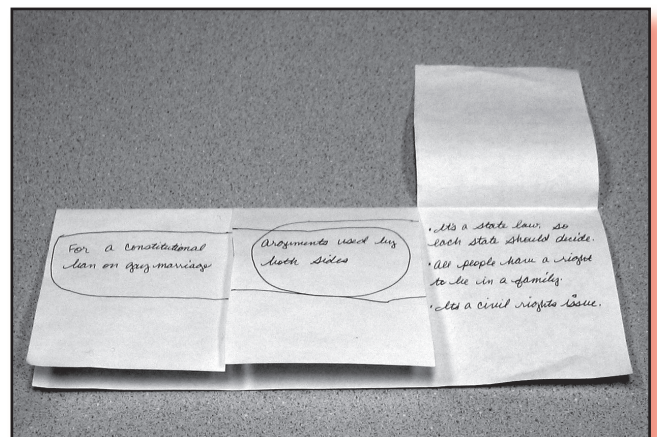 For a constitutional
ban on gay marriage
arguments used by
both sides
• It's a state law, so
each state should decide.
• All people have a right
to be in a family.
• Its a civil rights issue.